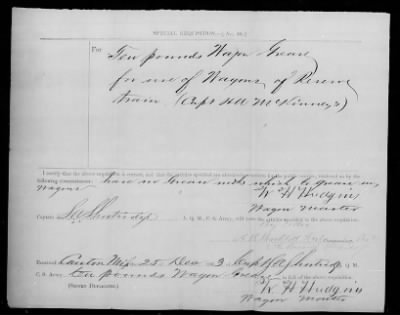 SPECIAL REQUISITION.—(No. 40.)
For
Ten pounds Wagon Grease
for use of Wagons of Reserve
train (Capt McKinney's)
I certify that the above requisition is correct, and that the articles specified are absolutely requisite for the public service, rendered so by the
following circumstances: have no Grease with which to grease my
Wagons
W H Hudgins
Wagon Master
Captain A. Q. M., C. S. Army, will issue the articles specified in the above requisition.
Commanding
Received Canton Miss 25 Dec 3 of Capt Q. M.
C. S. Army, Ten pounds Wagon Grease in full of the above requisition.
(SIGNED DUPLICATES.)
W H Hudgins
Wagon Master